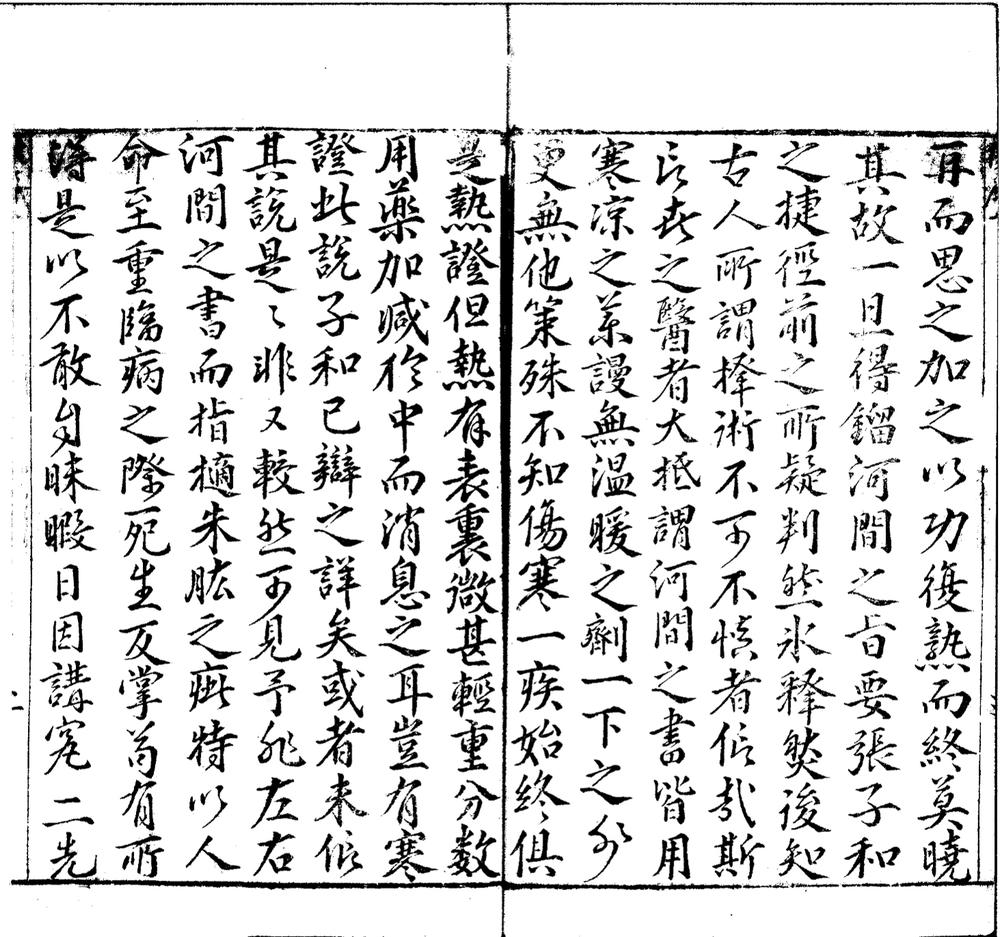 耳而思之加之以功復熟而終莫曉
其故一旦得鎦河間之旨要張子和
之捷徑前之所疑判然氷釋然後知
古人所謂擇術不可不慎者信哉斯
言世之醫者大抵謂河間之書皆用
寒凉之薬謾無温暖之劑一下之外
更無他策殊不知傷寒一疾始終俱
是熱證但熱有表裏微甚輕重分数
用藥加減於中而消息之耳豈有寒
證此說子和已辯之詳矣或者未信
其說是〻非又較然可見予非左右
河間之書而指擿朱肱之疵特以人
命至重臨病之際死生反掌苟有所
得是以不敢自昧暇日因講究二先